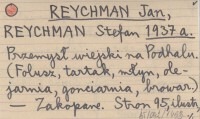 REYCHMAN Jan,
REYCHMAN Stefan 1937 a.
Przemysł wiejski na Podhalu.
(Folusz, tartak, młyn, ole-
jarnia, gonciarnia, browar.)
— Zakopane. Stron 95, ilustr.